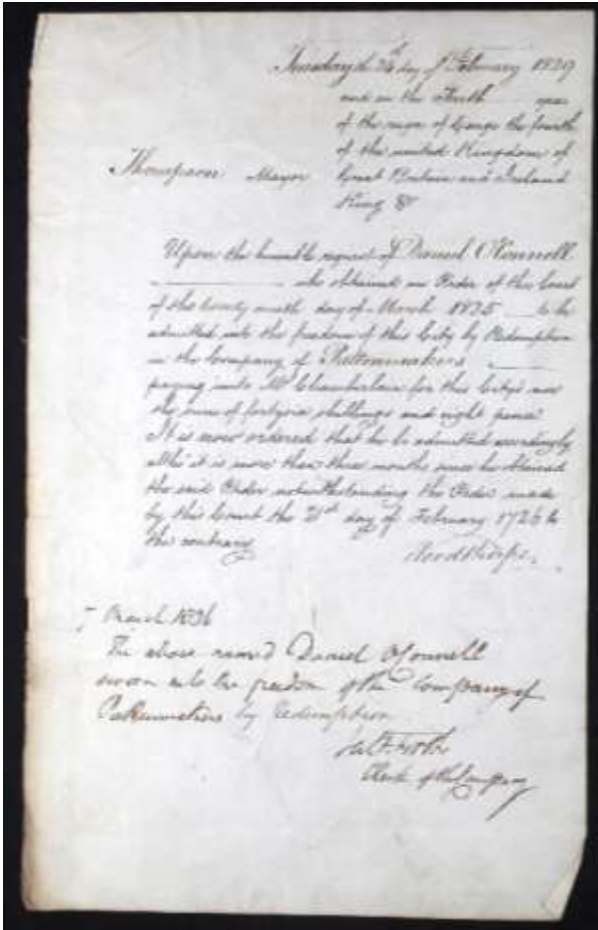 Tuesday the 24th day of February 1829
and in the Tenth year
of the reign of George the fourth
of the united Kingdom of
Thompson Mayor Great Britain and Ireland
King &c
Upon the humble request of Daniel O'Connell
who obtained an Order of this Court
of the twenty ninth day of March 1825 to be
admitted into the freedom of this City by Redemption
in the Company of Pattenmakers
paying unto Mr Chamberlain for this City's use
the sum of fortysix shillings and eight pence
It is now ordered that he be admitted accordingly
altho' it is more than three months since he obtained
the said Order notwithstanding the Order made
by this Court the 21st day of February 1726 to
the contrary
Woodthorpe
March
The above named Daniel O'Connell
sworn into the freedom of the Company of
Pattenmakers by Redemption
Clerk of the Company